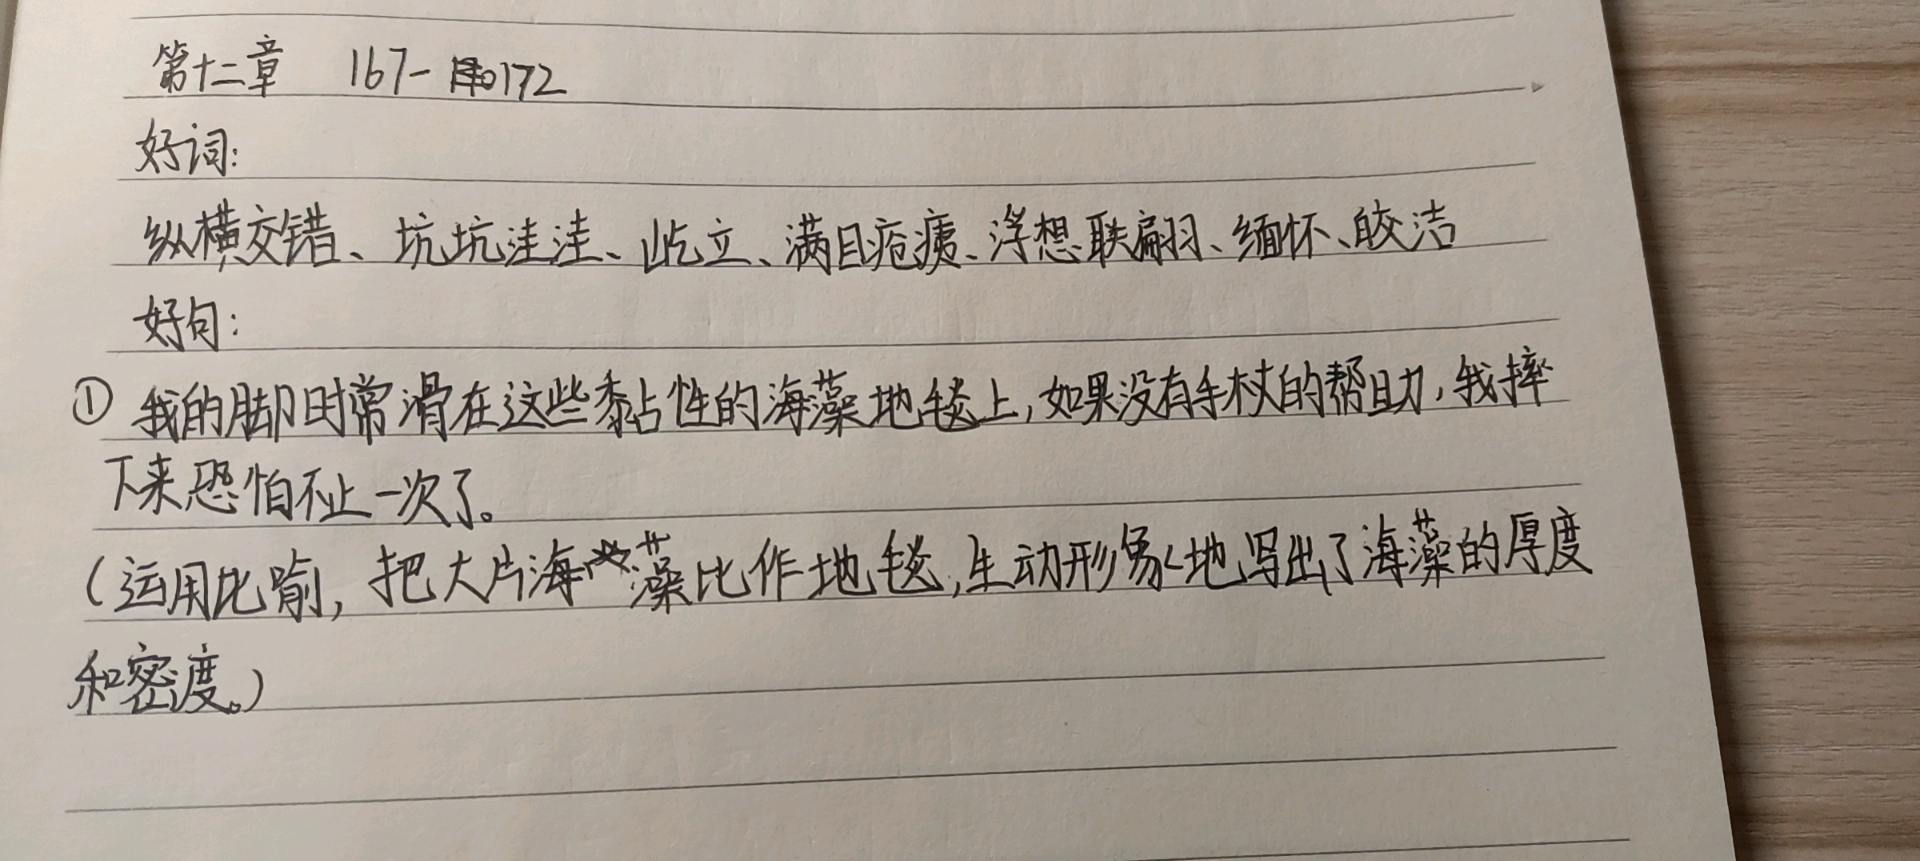 第十二章 167-172
好词:
纵横交错、坑坑洼洼、屹立、满目疮痍、浮想联翩、缅怀、皎洁
好句:
① 我的脚时常滑在这些黏性的海藻地毯上,如果没有手杖的帮助,我摔
下来恐怕不止一次了。
(运用比喻,把大片海藻比作地毯,生动形象地写出了海藻的厚度
和密度。)